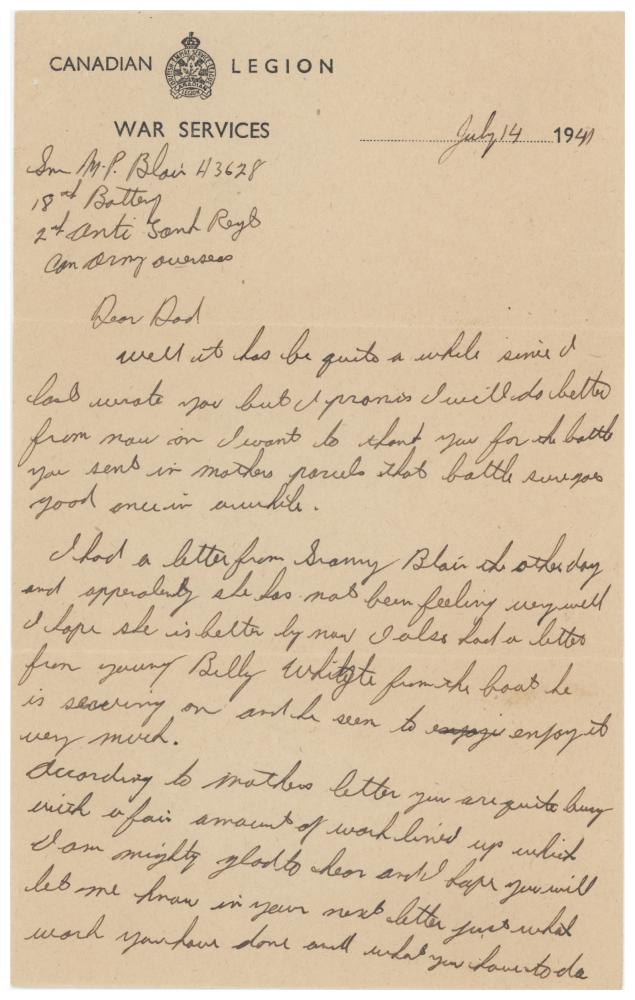 CANADIAN LEGION
WAR SERVICES
July 14 1941
M.P. Blair H3628
18th Battery
2nd Anti Tank Regt
Can Army overseas
Dear Dad
Well it has be quite a while since I
last wrote you but I promis I will do better
from now on I want to thank you for the bottle
you sent in mothers parcels that bottle sure goes
good once in awhile.
I had a letter from Granny Blair the other day
and apperalently she has not been feeling very well
I hope she is better by now I also had a letter
from young Billy Whityte from the boat he
is serving on and he seem to enjoy it
very much.
According to mothers letter you are quite busy
with a fair amount of work lined up which
I am mighty glad to hear and I hope you will
let me know in your next letter just what
work you have done and what you have to do